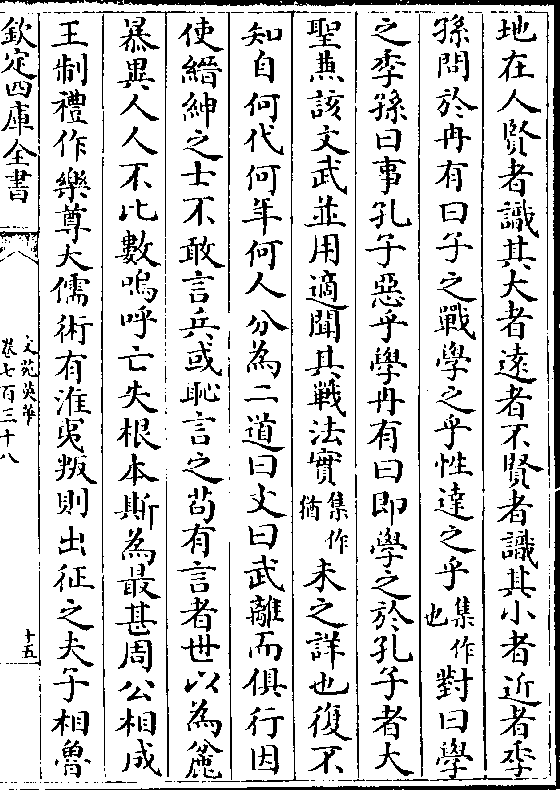 地在人賢者識其大者遠者不賢者識其小者近者季
孫問於冉有曰子之戰學之乎性達之乎集作也對曰學
之季孫曰事孔子惡乎學冉有曰即學之於孔子者大
聖兼該文武並用適聞其戰法實集作猶未之詳也復不
知自何代何年何人分為二道曰文曰武離而俱行因
使縉紳之士不敢言兵或恥言之苟有言者世以為麄
暴異人人不比數嗚呼亡失根本斯為最甚周公相成
王制禮作樂尊大儒術有淮夷叛則出征之夫子相魯
欽定四庫全書
文苑英華
卷七百三十八
十五